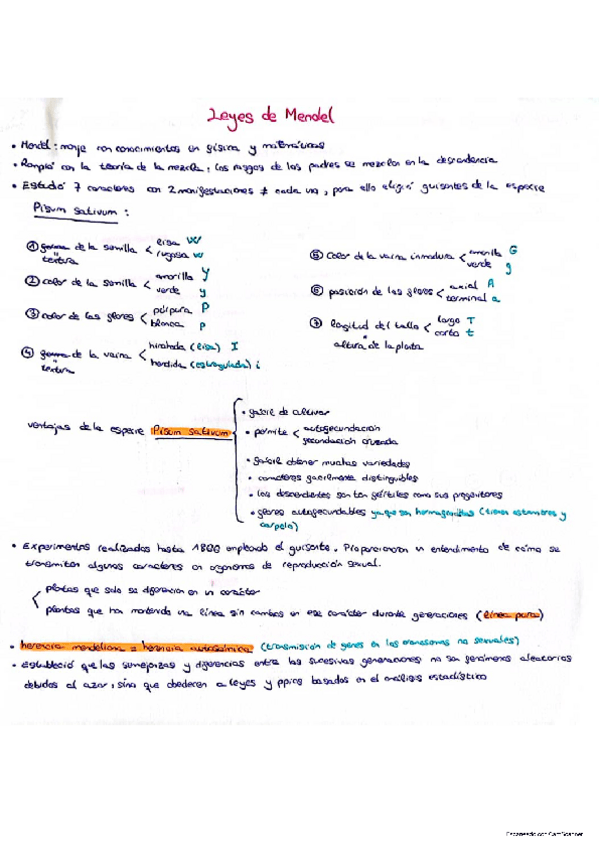 Leyes de Mendel
• Mendel: monje con conocimientos en física y matemáticas
• Rompió con la teoría de la mezcla: los rasgos de los padres se mezclan en la descendencia
• Estudió 7 caracteres con 2 manifestaciones ≠ cada una, para ello eligió guisantes de la especie
Pisum sativum:
① forma de la semilla < lisa W
rugosa w
textura
② color de la semilla < amarilla Y
verde y
③ color de las flores < púrpura P
blanca p
④ forma de la vaina < hinchada (lisa) I
hendida (estrangulada) i
textura
⑤ color de la vaina inmadura < amarilla G
verde g
⑥ posición de las flores < axial A
terminal a
⑦ longitud del tallo < largo T
corto t
altura de la planta
ventajas de la especie Pisum sativum
• fácil de cultivar
• permite < autofecundación
fecundación cruzada
• fácil obtener muchas variedades
• caracteres fácilmente distinguibles
• los descendientes son tan fértiles como sus progenitores
• flores autofecundables ya que son hermafroditas (tienen estambres y
carpelo)
• Experimentos realizados hasta empleando el guisante. Proporcionaron un entendimiento de cómo se
transmitían algunos caracteres en organismos de reproducción sexual.
plantas que solo se diferencian en un carácter
plantas que han mantenido una línea sin cambios en ese carácter durante generaciones (línea pura)
• herencia mendeliana = herencia autosómica (transmisión de genes en los cromosomas no sexuales)
• Estableció que las semejanzas y diferencias entre las sucesivas generaciones no son fenómenos aleatorios
debidos al azar, sino que obedecen a leyes y ppios basados en el análisis estadístico
Escaneado con CamScanner